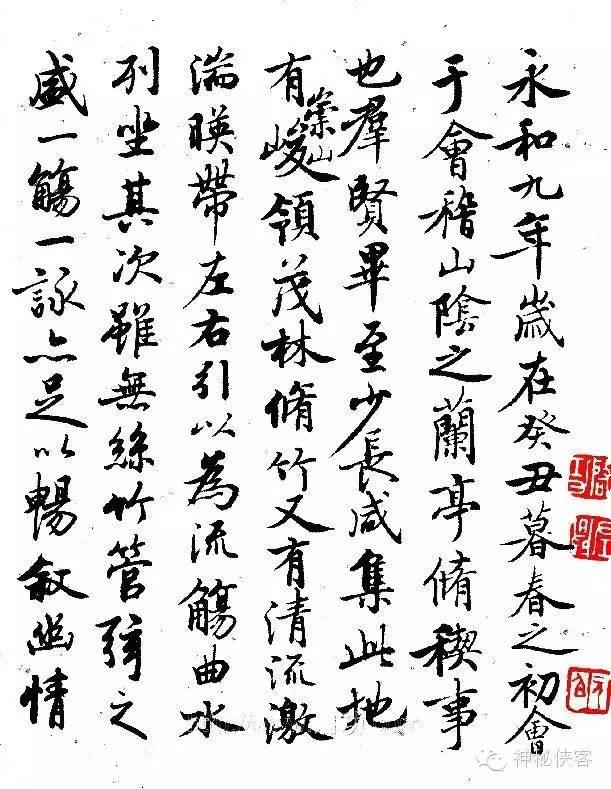 永和九年歲在癸丑暮春之初會
于會稽山陰之蘭亭脩稧事
也群賢畢至少長咸集此地
有崇山峻領茂林脩竹又有清流激
湍暎帶左右引以為流觴曲水
列坐其次雖無絲竹管弦之
盛一觴一詠亦足以暢敘幽情
神秘侠客